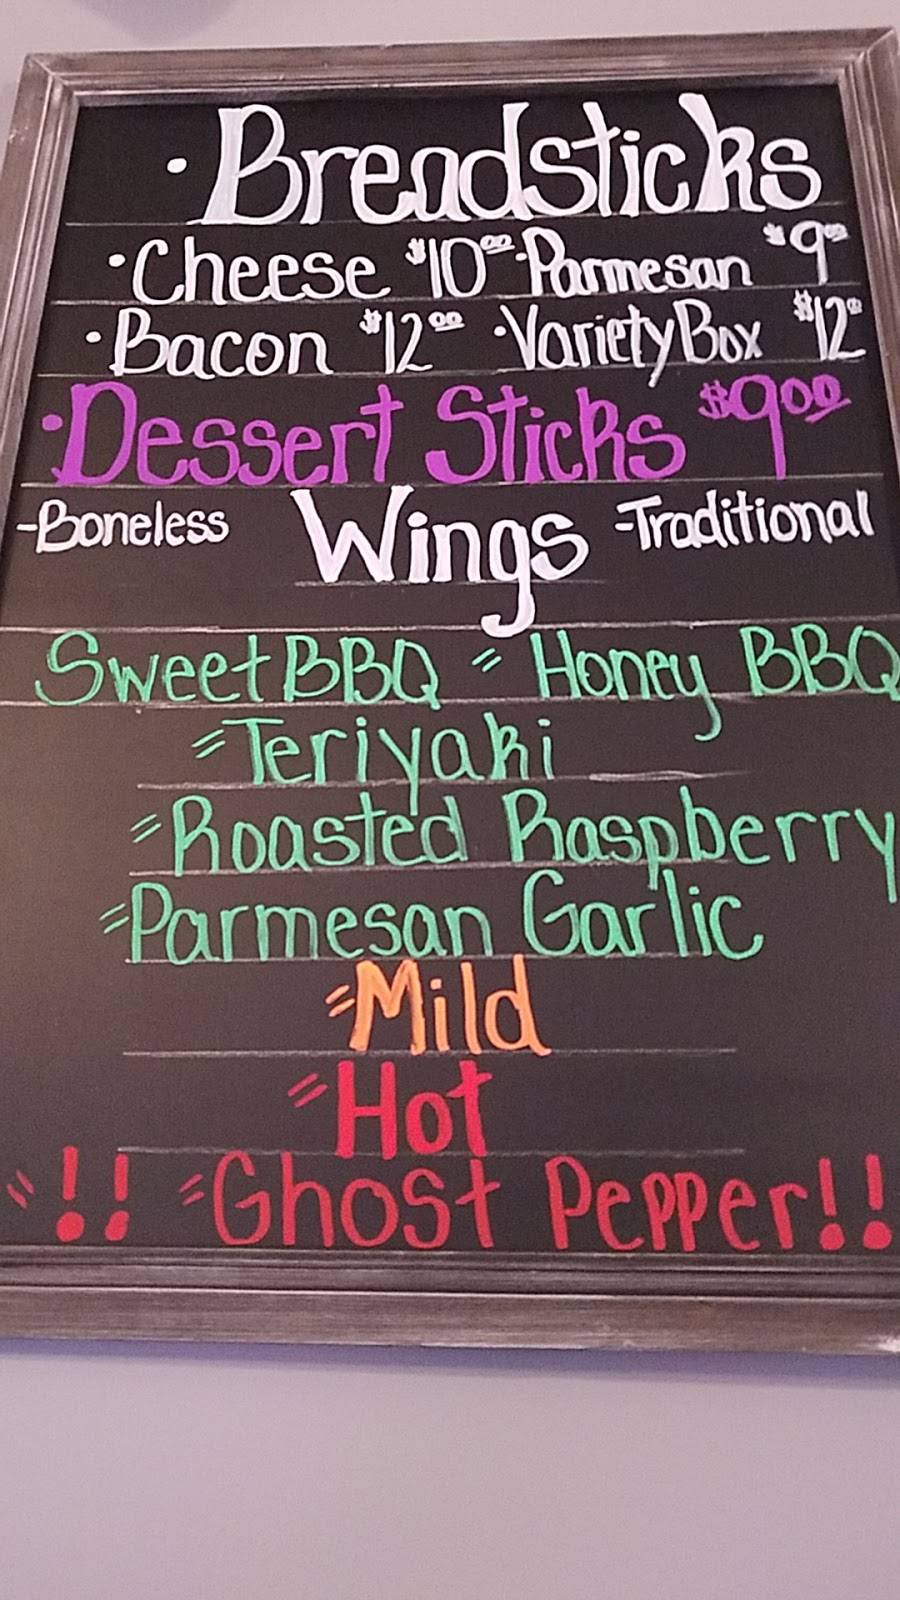 · Breadsticks
· Cheese $10.00 · Parmesan $9.00
· Bacon $12.00 · Variety Box $12.00
· Dessert Sticks $9.00
- Boneless Wings - Traditional
Sweet BBQ = Honey BBQ
= Teriyaki
= Roasted Raspberry
= Parmesan Garlic
= Mild
= Hot
= !! = Ghost Pepper!!